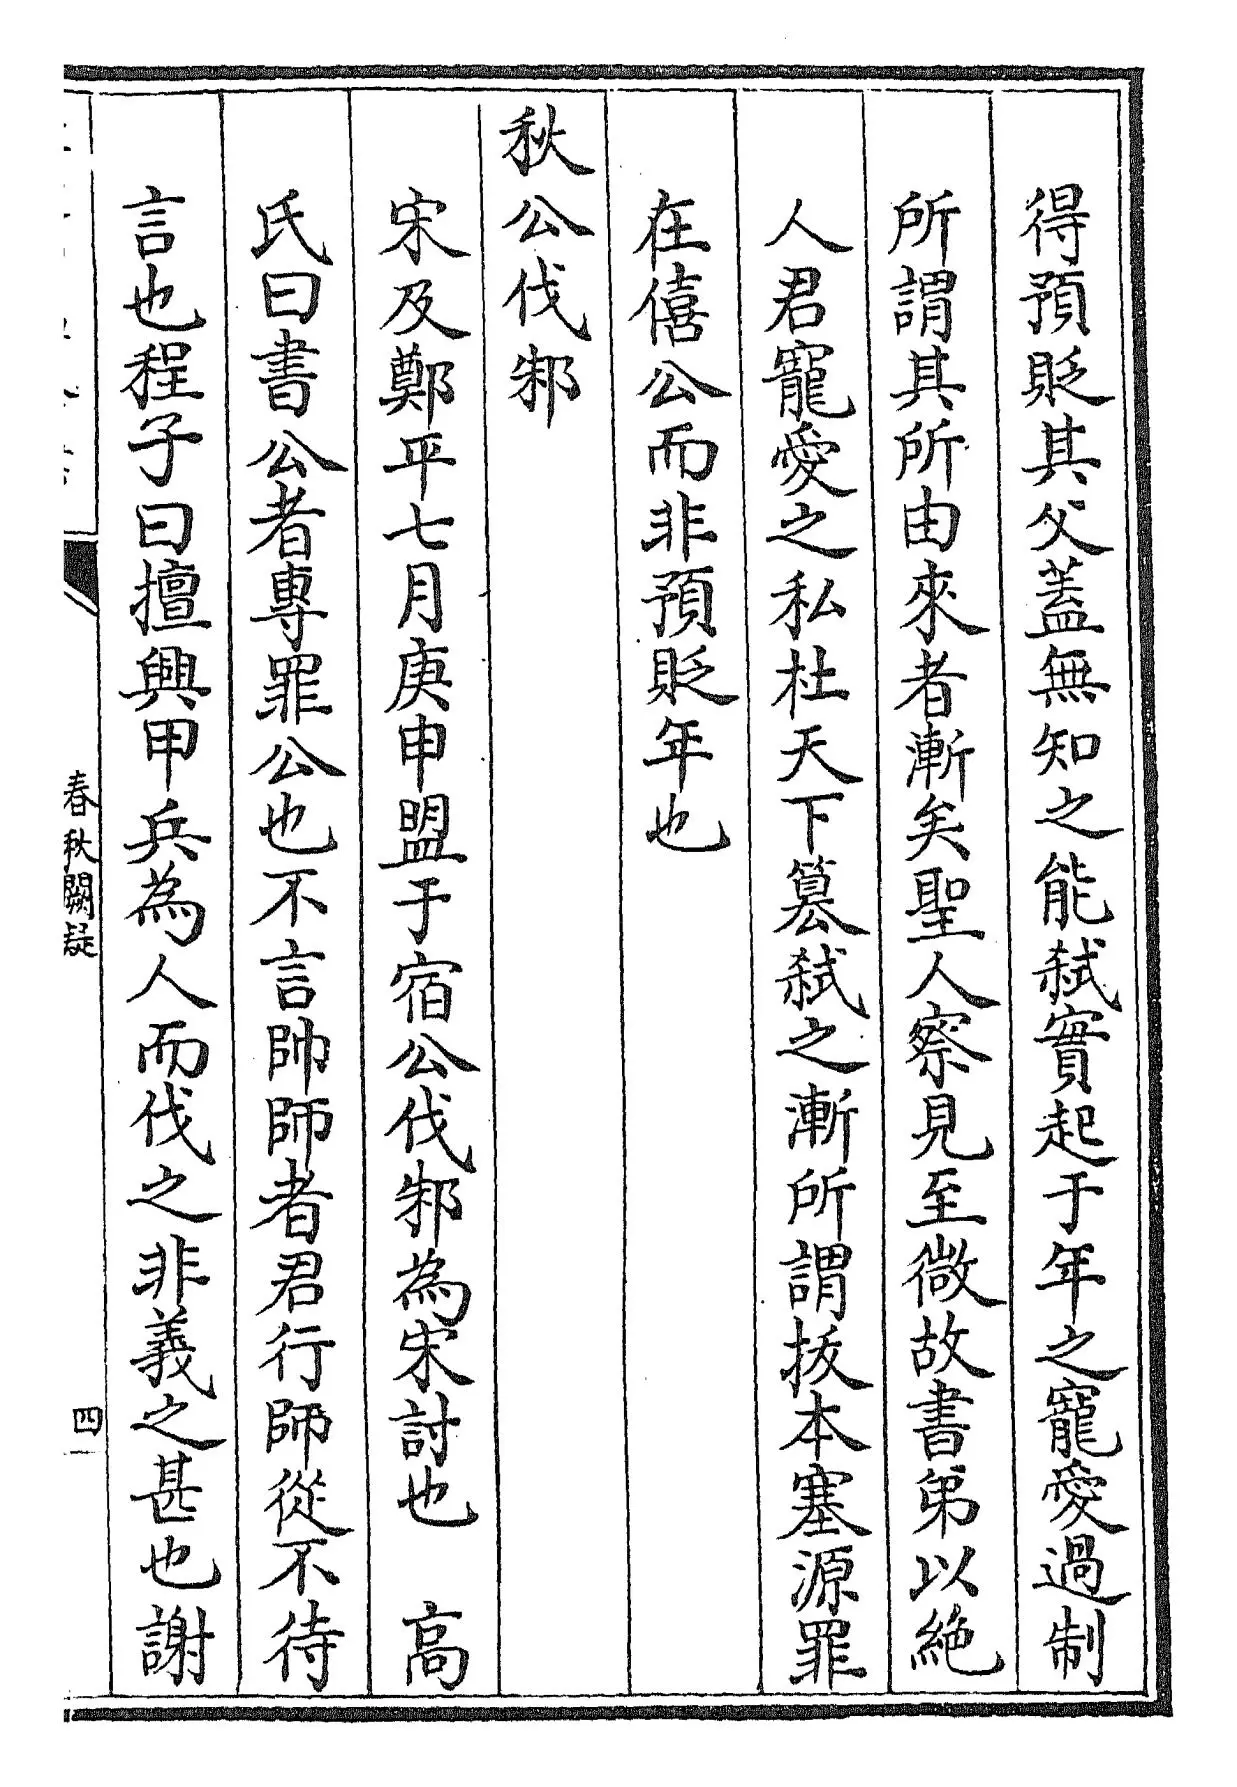 得預貶其父蓋無知之能弑實起于年之寵愛過制
所謂其所由來者漸矣聖人察見至微故書弟以絶
人君寵愛之私杜天下簒弑之漸所謂拔本塞源罪
在僖公而非預貶年也
秋公伐邾
宋及鄭平七月庚申盟于宿公伐邾為宋討也　高
氏曰書公者專罪公也不言帥師者君行師從不待
言也程子曰擅興甲兵為人而伐之非義之甚也謝
春秋闕疑
四